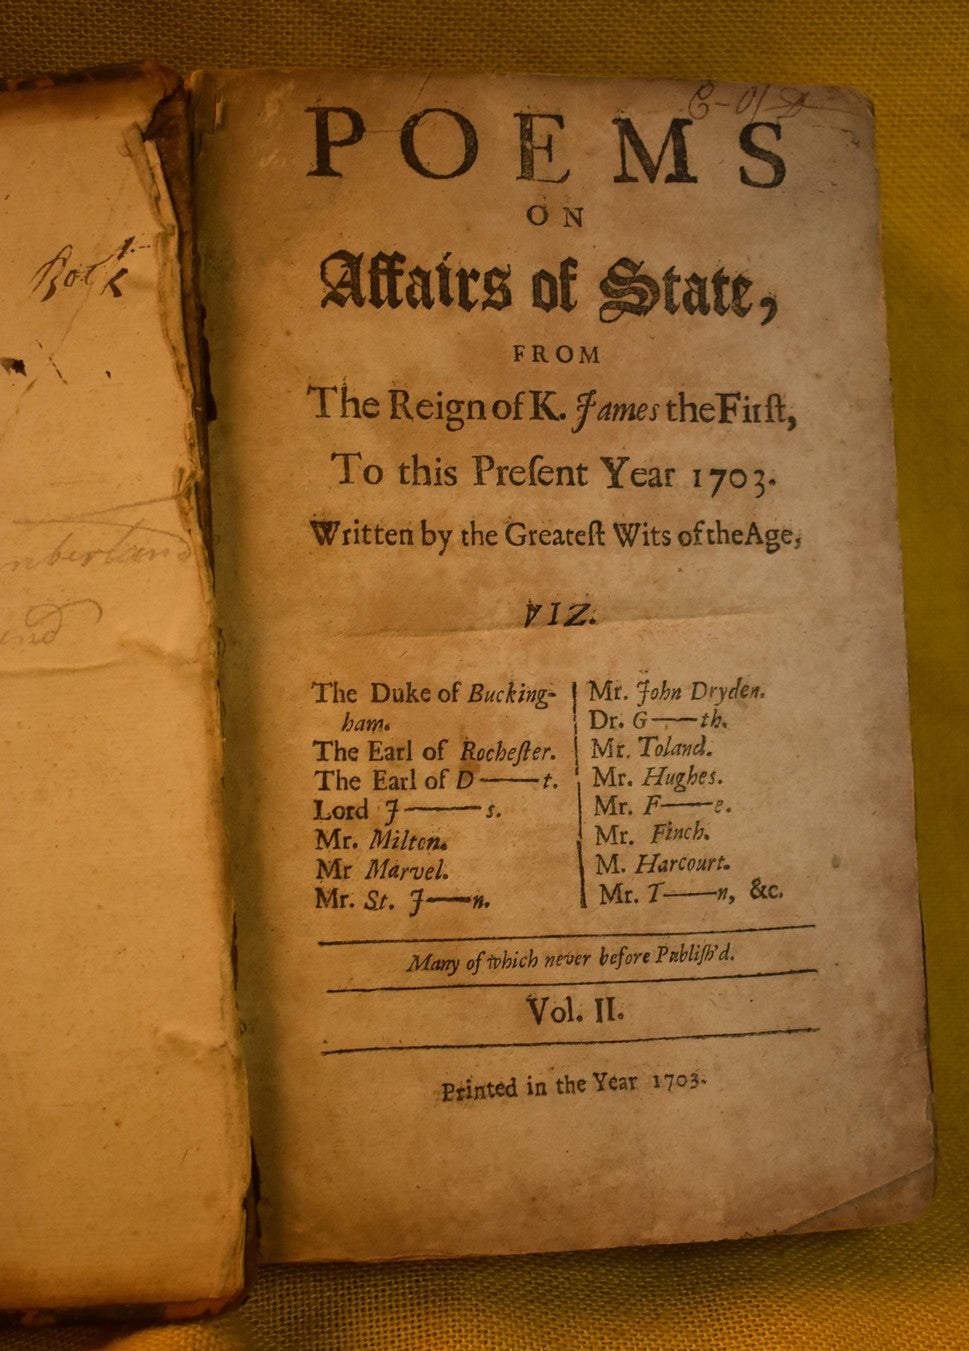 POEMS
ON
Affairs of State,
FROM
The Reign of K. James the Firſt,
To this Preſent Year 1703.
Written by the Greateſt Wits of the Age,
VIZ.
The Duke of Bucking-
ham.
The Earl of Rocheſter.
The Earl of D——t.
Lord J——s.
Mr. Milton.
Mr Marvel.
Mr. St. J——n.
Mr. John Dryden.
Dr. G——th.
Mr. Toland.
Mr. Hughes.
Mr. F——e.
Mr. Finch.
M. Harcourt.
Mr. T——n, &c.
Many of which never before Publiſh'd.
Vol. II.
Printed in the Year 1703.